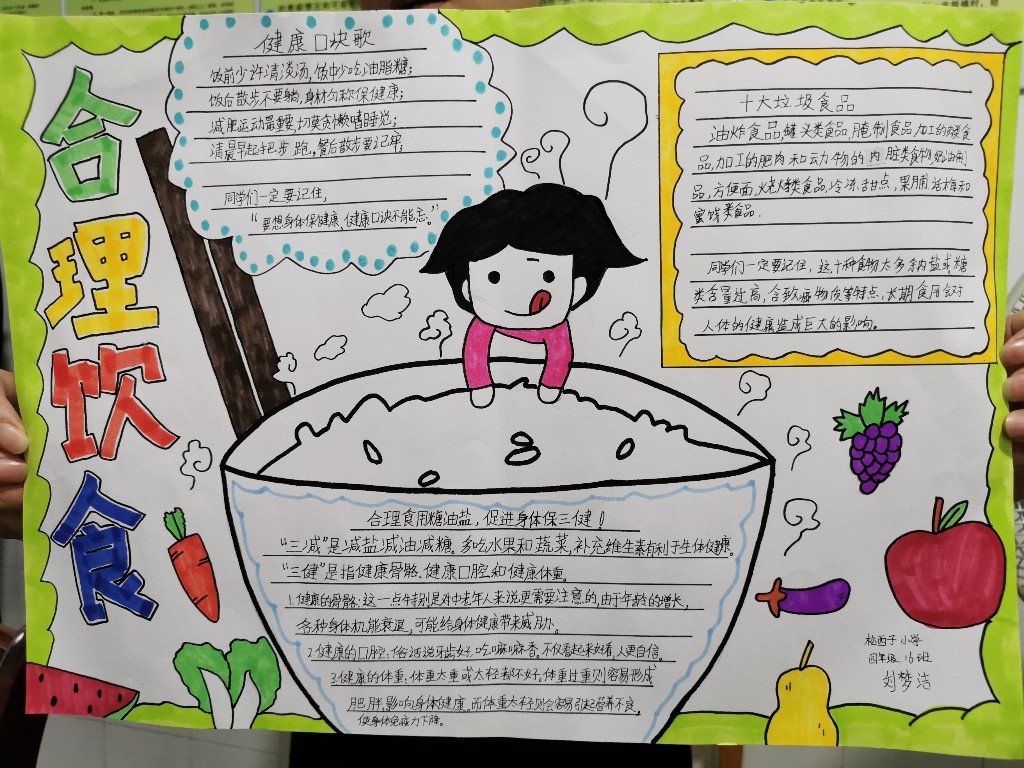 合理饮食
健康口诀歌
饭前少许清淡汤,饭中少吃油脂糖;
饭后散步不要躺,身材匀称保健康;
减肥运动最重要,切莫贪懒嗜睡觉;
清晨早起把步跑,餐后散步要记牢;
同学们一定要记住,
“要想身体保健康、健康口诀不能忘。”
十大垃圾食品
油炸食品,罐头类食品,腌制食品,加工的肉类食
品,加工的肥肉和动物的内脏类食物,奶油制
品,方便面,烧烤类食品,冷冻甜点,果脯话梅和
蜜饯类食品.
同学们一定要记住,这十种食物大多含的盐或糖
类含量过高,含致癌物质等特点,长期食用会对
人体的健康造成巨大的影响。
合理食用糖油盐,促进身体保三健!
“三减”是减盐减油减糖。多吃水果和蔬菜,补充维生素有利于生体健康。
“三健”是指健康骨骼、健康口腔和健康体重。
1.健康的骨骼:这一点特别是对中老年人来说更需要注意的,由于年龄的增长,
各种身体机能衰退,可能给身体健康带来威胁。
2.健康的口腔:俗话说牙齿好.吃嘛嘛香,不仅看起来好看,人更自信。
3.健康的体重,体重太重或太轻者不好,体重过重则容易形成
肥胖,影响身体健康。而体重太轻则会容易引起营养不良,
使身体免疫力下降。
西子小学
四年级16班
刘梦洁